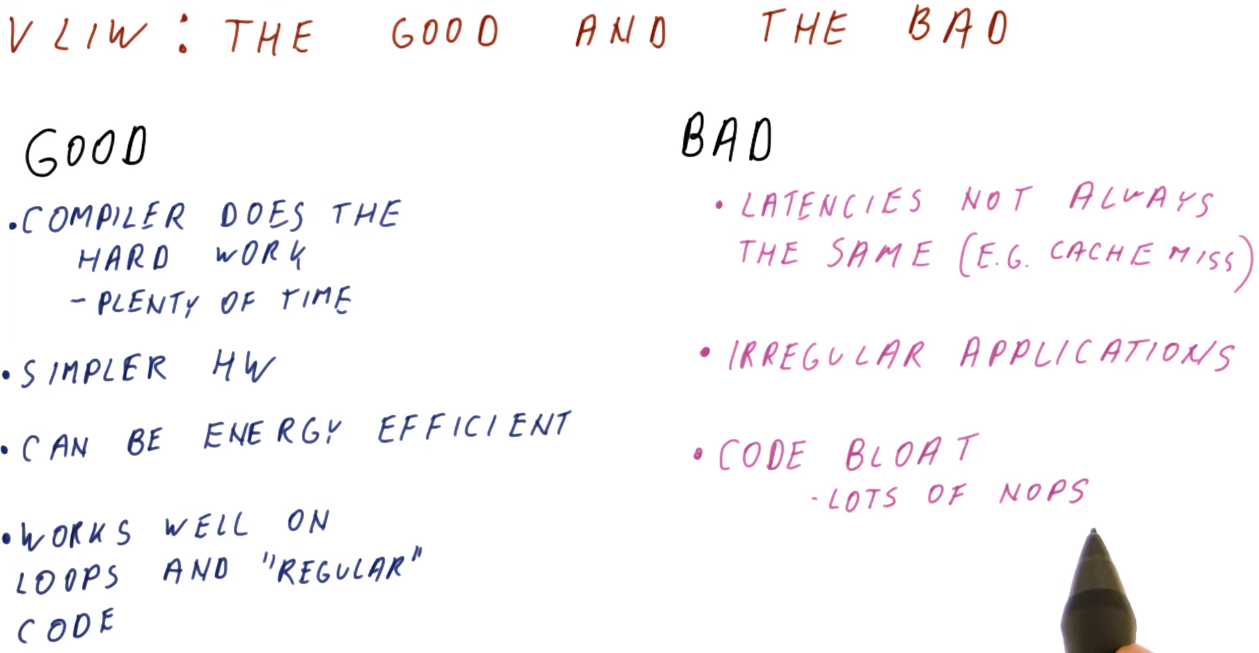 VLIW: THE GOOD AND THE BAD
GOOD
•COMPILER DOES THE
HARD WORK
- PLENTY OF TIME
•SIMPLER HW
•CAN BE ENERGY EFFICIENT
•WORKS WELL ON
LOOPS AND "REGULAR"
CODE
BAD
• LATENCIES NOT ALWAYS
THE SAME (E.G. CACHE MISS)
• IRREGULAR APPLICATIONS
• CODE BLOAT
- LOTS OF NOPS